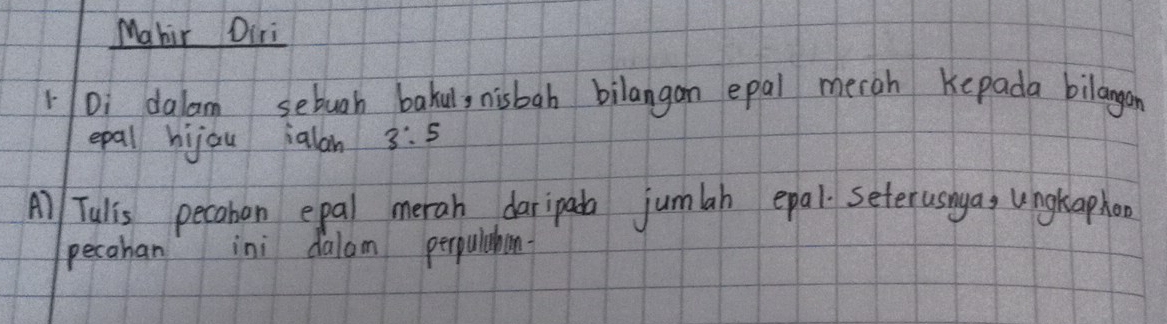 Mahir Diri
1. Di dalam sebuah bakul, nisbah bilangan epal merah kepada bilangan
epal hijau ialah 3:5
A) Tulis pecahan epal merah daripada jumlah epal. Seterusnya, ungkaphan
pecahan ini dalam perpuluhan.